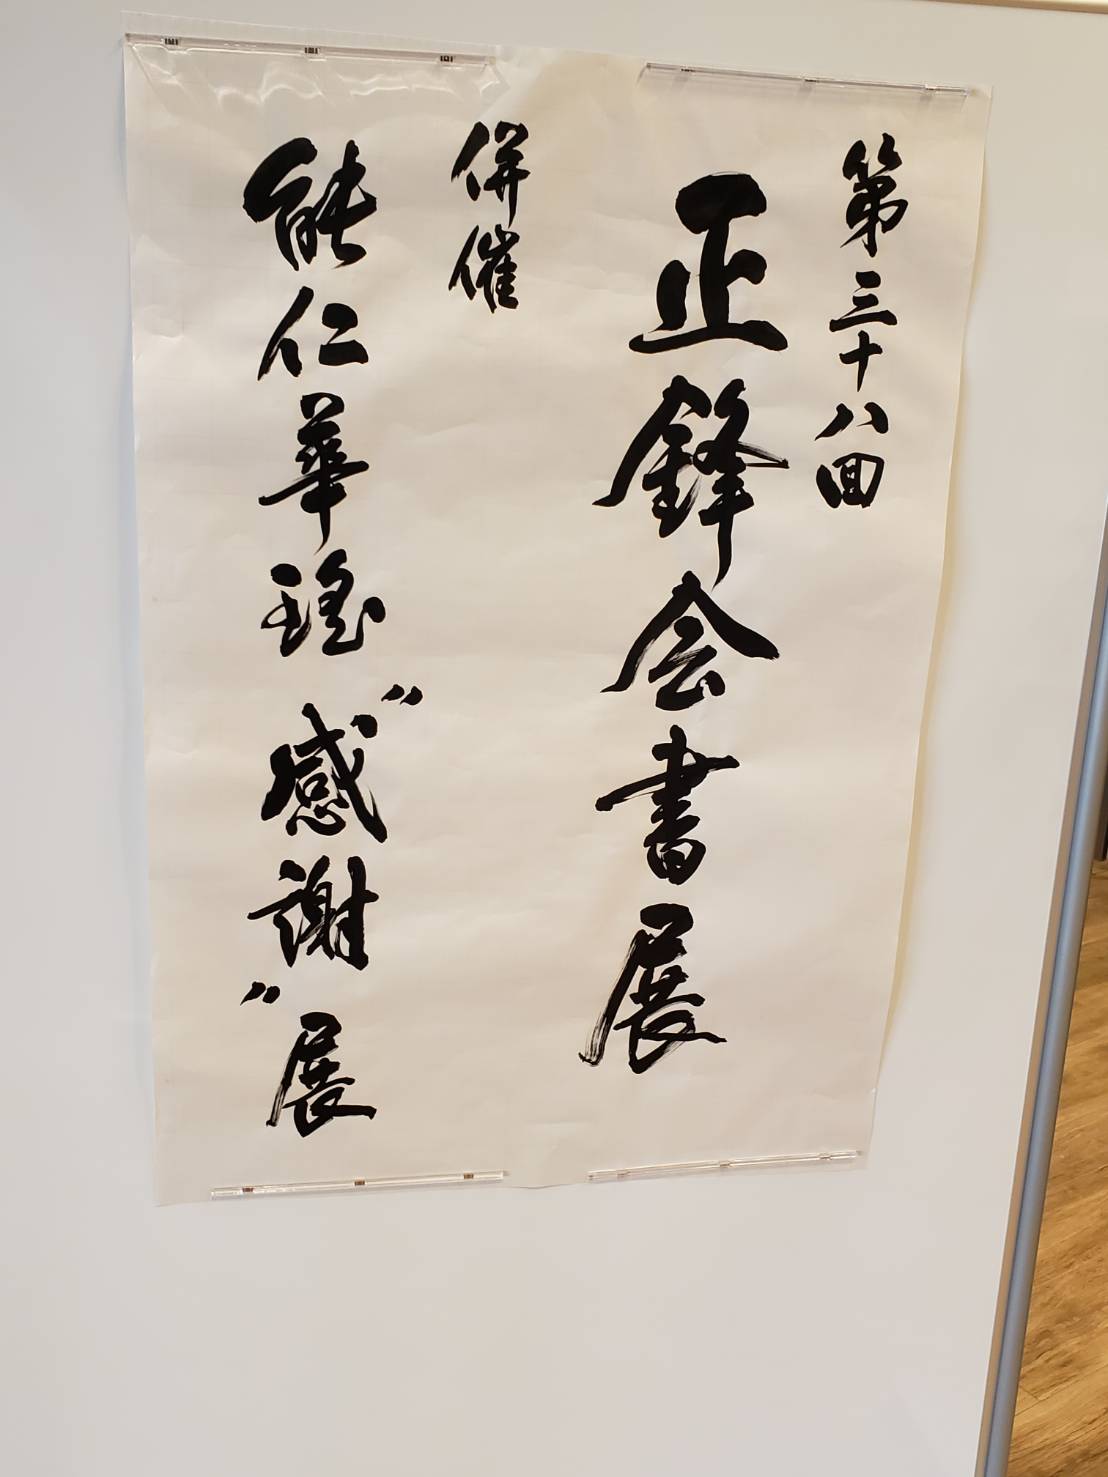 第三十八回
正鋒会書展
併催
能仁華瑤〝感謝〟展